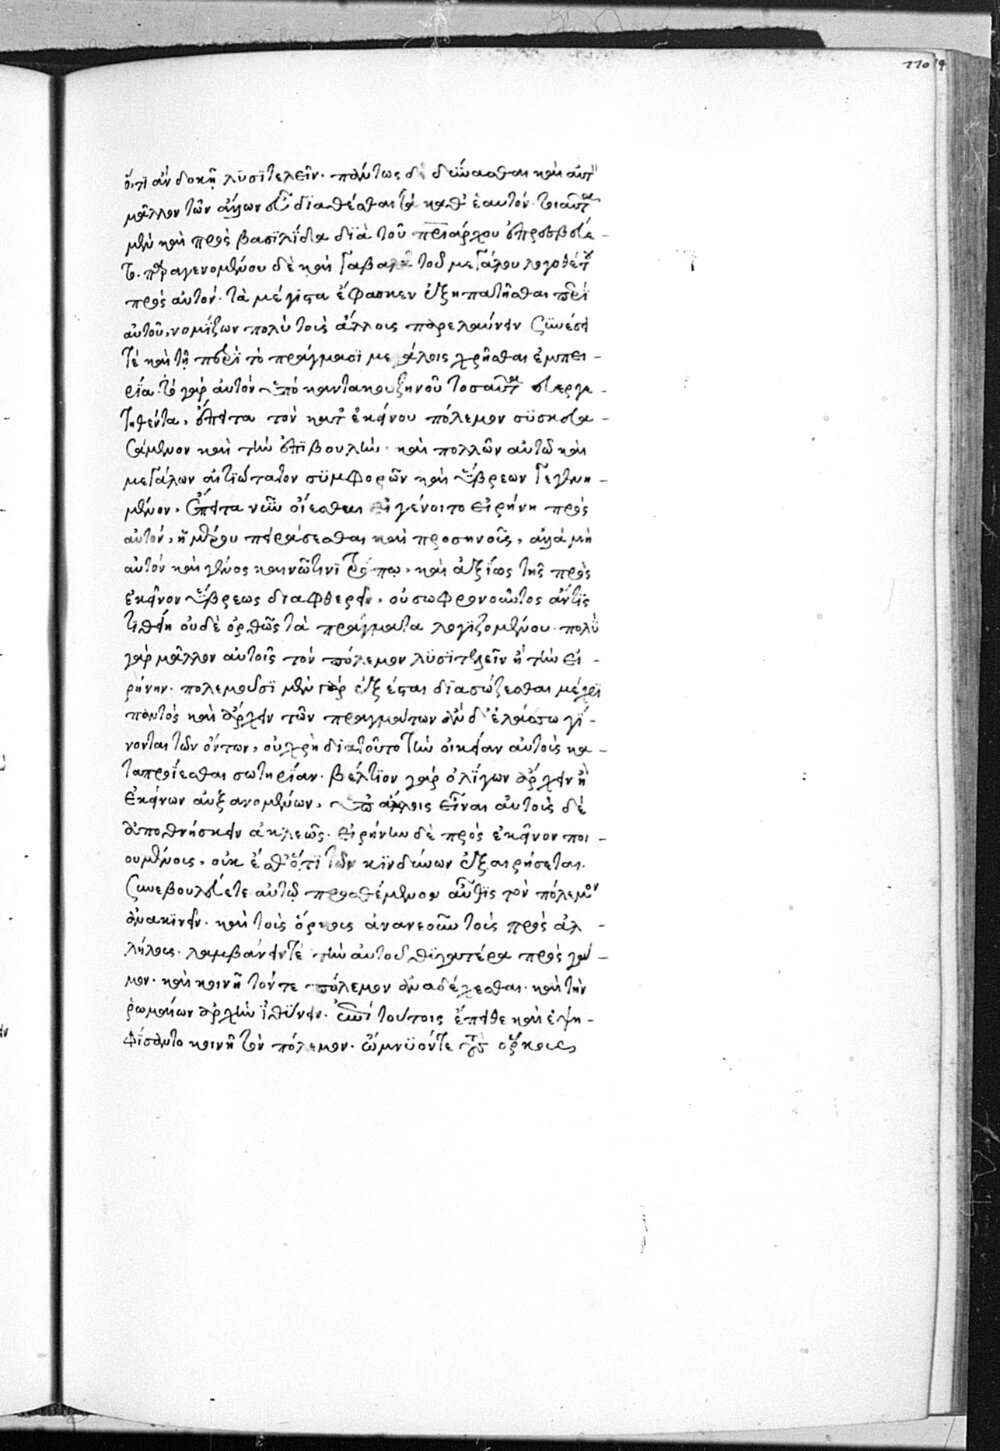 ὅ,τι ἂν δοκῇ λυσιτελεῖν. πάντως δὲ δύνασθαι καὶ αὐτὸν
μᾶλλον τῶν ἄλλων εὖ διαθέσθαι τὰ καθ' ἑαυτόν. τοιαῦτα
μὲν καὶ πρὸς βασιλίδα διὰ τοῦ πριάρχου ἐπρεσβεύε-
το. παραγενομένου δὲ καὶ Γαβαλᾶ τοῦ μεγάλου λογοθέτου
πρὸς αὐτόν. τὰ μέγιστα ἔφασκεν ἐξηπατῆσθαι περὶ
αὐτοῦ, νομίζων πολὺ τοὺς ἄλλους παρελαύνειν συνέσει
τὲ καὶ τῇ περὶ τὸ πράγμασι μεγάλοις χρῆσθαι ἐμπει-
ρία. τὸ γὰρ αὐτὸν ὑπὸ καντακουζηνοῦ τοσαῦτα εὐεργε-
τηθέντα, ἔπειτα τὸν κατ' ἐκείνου πόλεμον συσκευα-
σάμενον καὶ τὴν ἐπιβουλὴν. καὶ πολλῶν αὐτῷ καὶ
μεγάλων αἰτιώτατον συμφορῶν καὶ ὕβρεων γεγενη-
μένον, ἔπειτα νῦν οἴεσθαι εἰ γένοιτο εἰρήνη πρὸς
αὐτόν, ἡμέρου πειράσεσθαι καὶ προσηνοῦς, ἀλλὰ μὴ
αὐτὸν καὶ γένος καινῶ τινι τρόπω, καὶ ἀξίως τῆς πρὸς
ἐκεῖνον ὕβρεως διαφθερεῖν, οὐ σωφρονοῦντος ἄν τις
τιθείη οὐδὲ ὀρθῶς τὰ πράγματα λογιζομένου. πολὺ
γὰρ μᾶλλον αὐτοῖς τὸν πόλεμον λυσιτελεῖν ἢ τὴν εἰ-
ρήνην. πολεμοῦσι μὲν γὰρ ἐξέσται διασώζεσθαι μέχρι
παντὸς καὶ ἄρχειν τῶν πραγμάτων ἂν δ' ἐλάσσω γί-
νονται τῶν ὄντων, οὐ χρὴ διατοῦτο τὴν οἰκείαν αὐτοὺς κα-
ταπροΐεσθαι σωτηρίαν. βέλτιον γὰρ ὀλίγων ἄρχειν ἢ
ἐκείνων αὐξανομένων, ὑπ' ἄλλοις εἶναι αὐτοὺς δὲ
ἀποθνήσκειν ἀκλεῶς. εἰρήνην δὲ πρὸς ἐκεῖνον ποι
ουμένοις, οὐκ ἔσθ' ὅ,τι τῶν κινδύνων ἐξαιρήσεται.
συνεβουλεύετε αὐτῷ προσθέμενον αὖθις τὸν πόλεμον
ἀνακινεῖν. καὶ τοὺς ὅρκους ἀνανεοῦν τοὺς πρὸς ἀλ-
λήλους. λαμβάνειν τὲ τὴν αὐτοῦ θυγατέρα πρὸς γά-
μον. καὶ κοινῇ τόν τε πόλεμον ἀναδέχεσθαι. καὶ τὴν
ῥωμαίων ἀρχὴν ἰθύνειν. ἐπὶ τούτοις ἔπειθε καὶ ἐψη-
φίσαντο κοινῇ τὸν πόλεμον. ὤμνυόν τε τοὺς ὅρκους